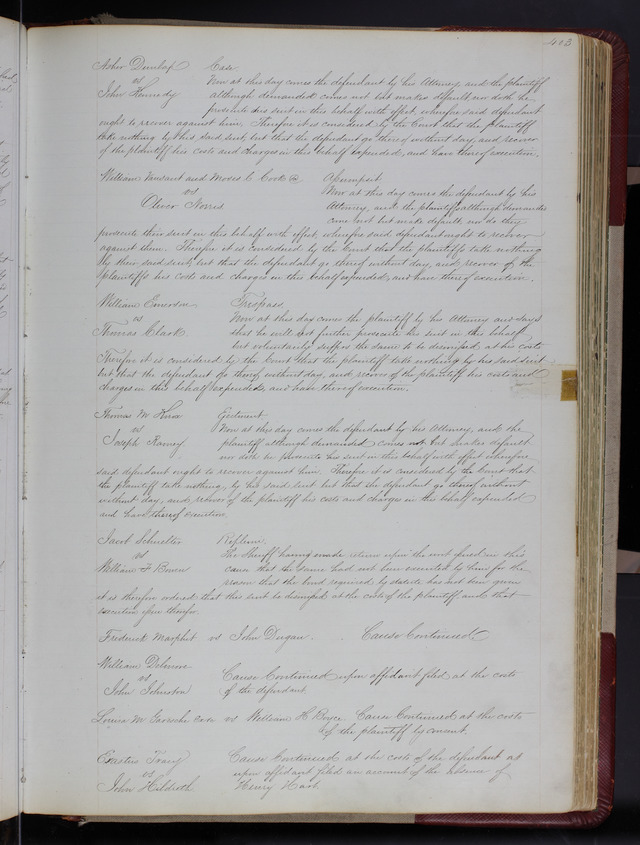 403
Asher Dunlap Case
vs Now at this day comes the defendant by his Attorney and the plaintiff
John Kennedy although demanded comes not but makes default nor doth he
prosecute his suit in this behalf with effect, wherefore said defendant
ought to recover against him. Therefore it is considered by the Court that the plaintiff
take nothing by his said suit, but that the defendant go thereof without day, and recover
of the plaintiff his costs and charges in this behalf expended, and have thereof execution.
William Vansant and Moses C. Cook Assumpsit
vs Now at this day comes the defendant by his
Oliver Norris Attorney, and the plaintiffs although demanded
come not but make default nor do they
prosecute their suit in this behalf with effect, wherefore said defendant ought to recover
against them. Therefore it is considered by the Court that the plaintiffs take nothing
by their said suit, but that the defendant go thereof without day, and recover of the
plaintiffs his costs and charges in this behalf expended, and have thereof execution.
William Emerson Trespass
vs Now at this day comes the plaintiff by his Attorney and says
Thomas Clark that he will not further prosecute his suit in this behalf
but voluntarily suffers the same to be dismissed, at his costs
Therefore it is considered by the Court that the plaintiff take nothing by his said suit
but that the defendant go thereof without day, and recover of the plaintiff his costs and
charges in this behalf expended, and have thereof execution.
Thomas M. Ejectment
vs Now at this day comes the defendant by his Attorney, and the
Joseph Ramey plaintiff although demanded comes not but makes default
nor doth he prosecute his suit in this behalf with effect wherefore
said defendant ought to recover against him. Therefore it is considered by the Court that
the plaintiff take nothing, by his said suit but that the defendant go thereof without
without day, and recover of the plaintiff his costs and charges in this behalf expended
and have thereof execution.
Jacob Replevin
vs The Sheriff having made return upon the writ issued in this
William F. Bowen cause that the same had not been executed by him for the
reason that the bond required by statute has not been given
it is therefore ordered that this suit be dismissed at the costs of the plaintiff and that
execution issue therefor.
Frederick vs John Cause Continued
William Cause Continued upon affidavit filed at the costs
vs of the defendant
John Johnston
M. vs William H Boyce Cause Continued at the costs
of the plaintiff by consent.
Erastus Cause Continued at the costs of the defendant at
vs upon affidavit filed on account of the absence of
John Hildreth Henry